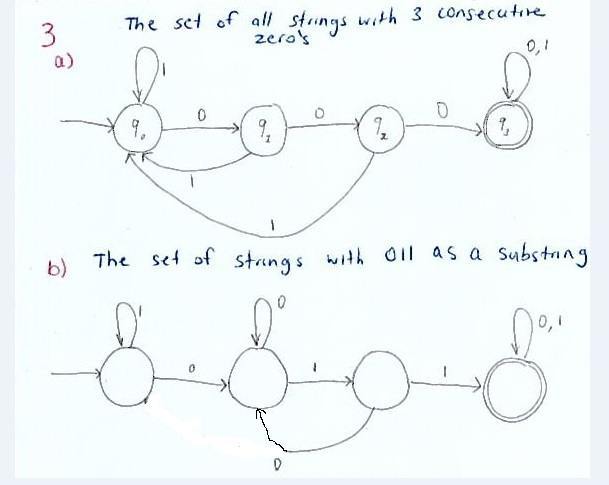 3
The set of all strings with 3 consecutive
zero's
a)
1
0,1
0
0
0
q0
q1
q2
q3
1
1
b) The set of strings with 011 as a substring
1
0
0,1
0
1
1
0